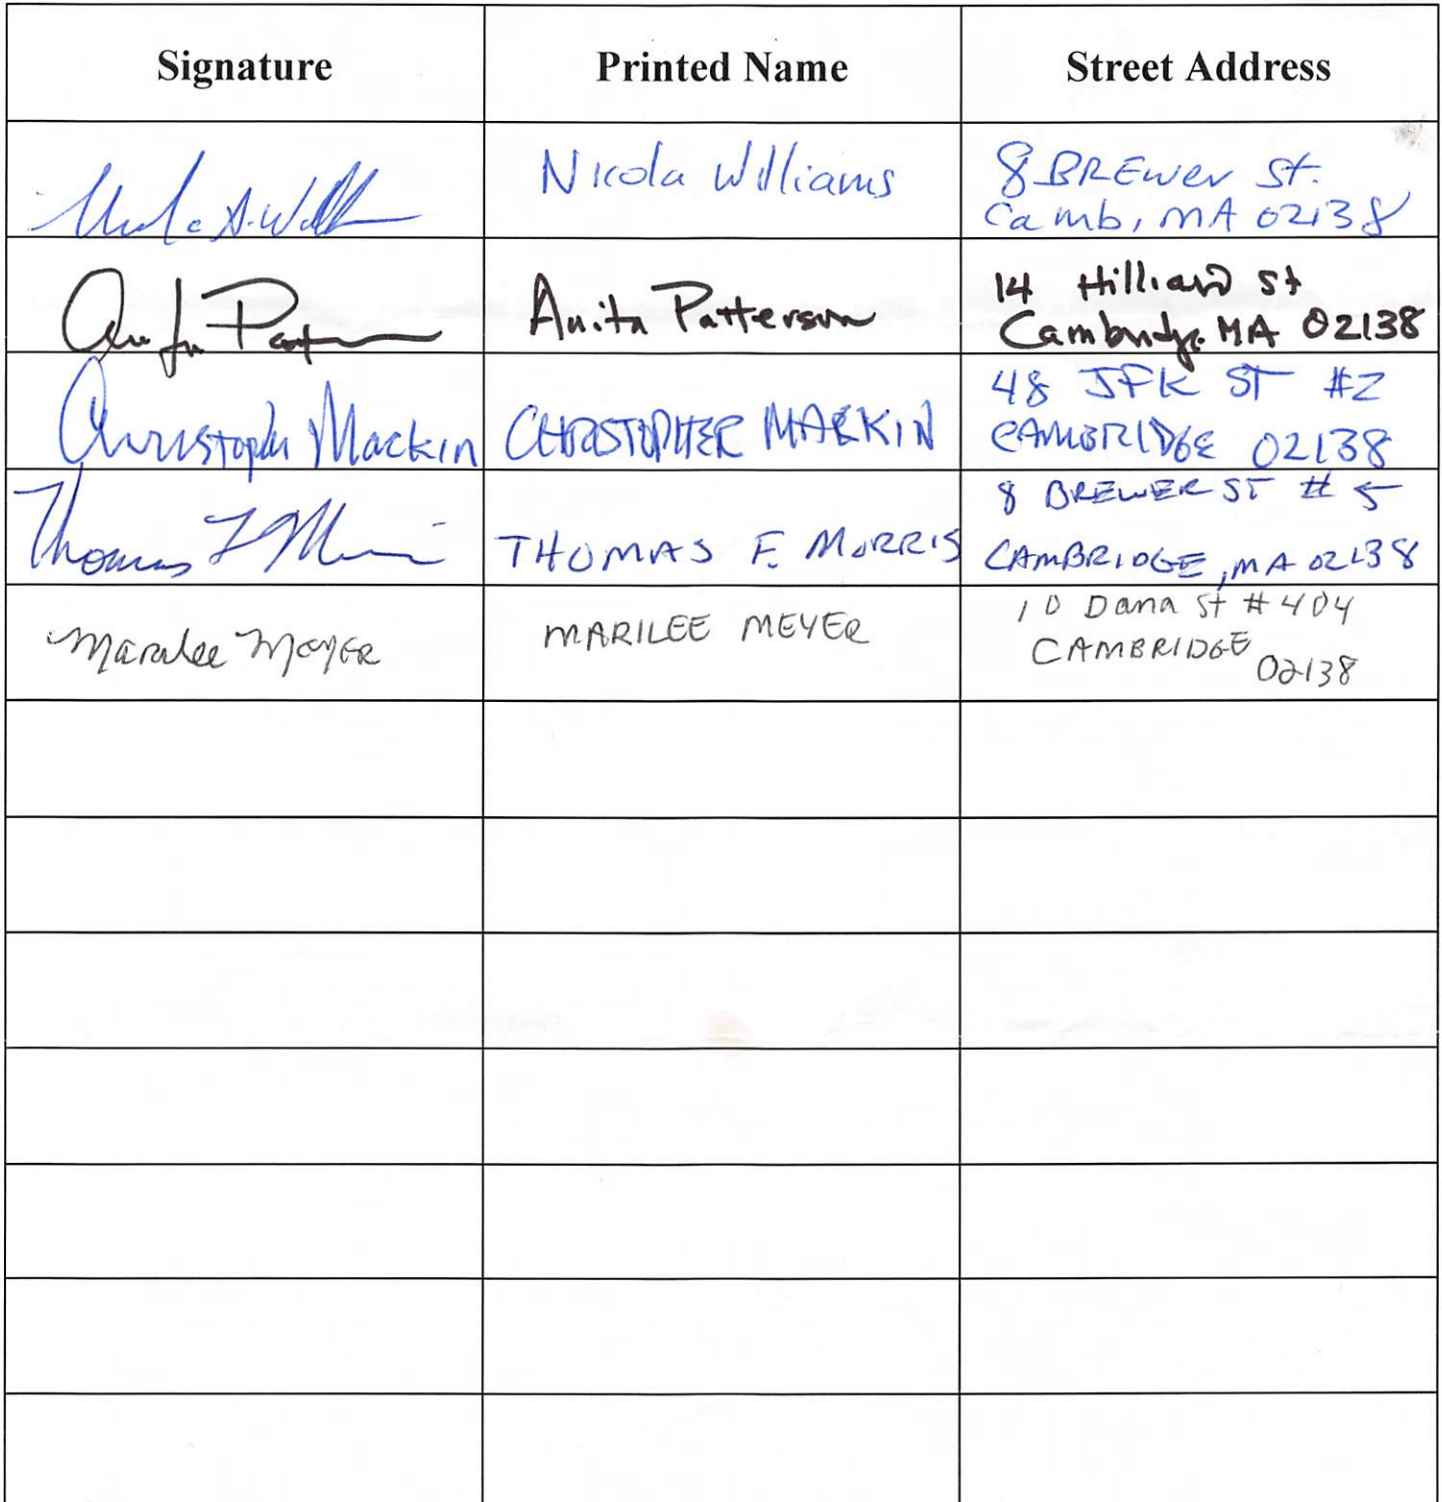 Signature Printed Name Street Address
Nicola Williams
8 BREWER St.
Camb, MA 02138
Anita Patterson
14 Hilliard St
Cambridge MA 02138
Christopher Mackin CHRISTOPHER MACKIN
48 JFK ST #2
CAMBRIDGE 02138
Thomas F. THOMAS F. MORRIS
8 BREWER ST # 5
CAMBRIDGE, MA 02138
Marilee Meyer MARILEE MEYER
10 Dana St #404
CAMBRIDGE
02138